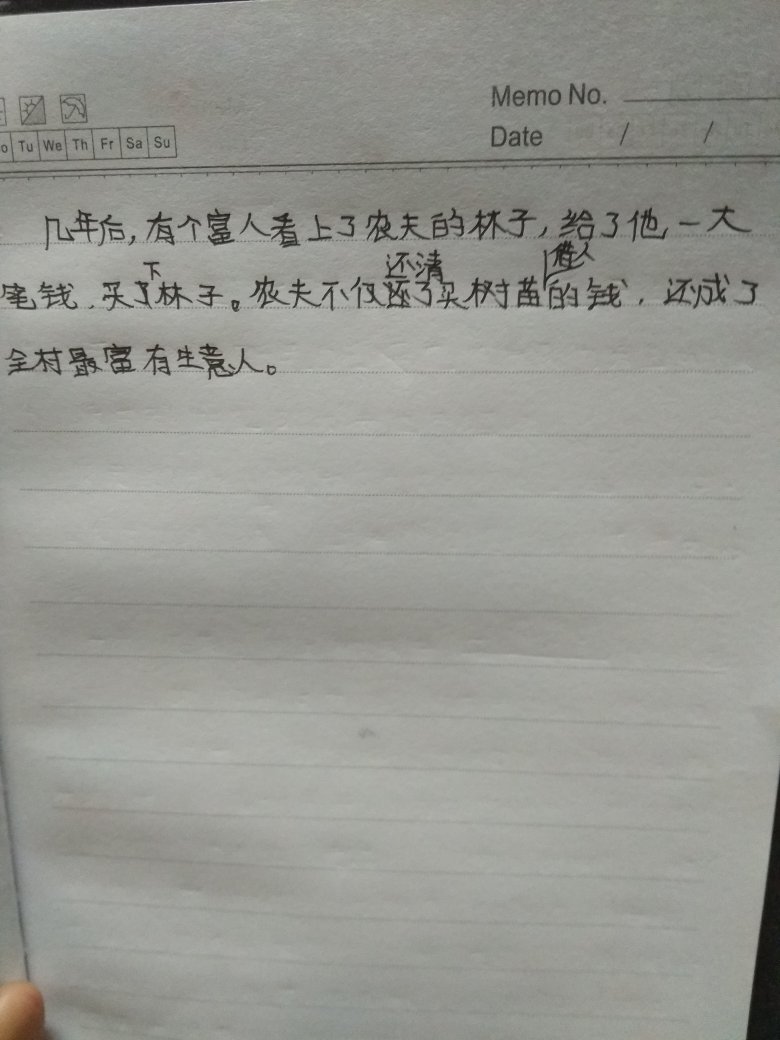 Memo No.
o Tu We Th Fr Sa Su
Date / /
几年后,有个富人看上了农夫的林子,给了他一大
下
还清
笔钱,买了林子。农夫不仅还了买树苗的钱,还成了
全村最富有生意人。